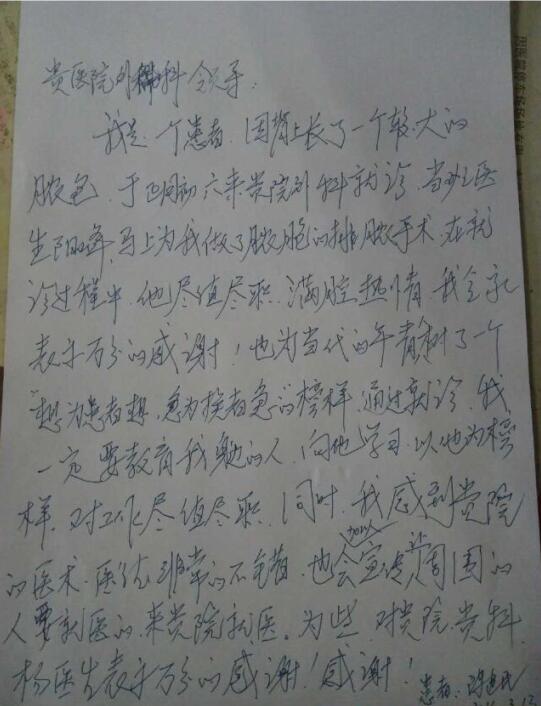 贵医院外科领导：
我是一个患者，因背上长了一个较大的
脓包，于正月初六来贵院外科就诊，当班医
生阳峰，马上为我做了脓胞的排脓手术，在就
诊过程中，他尽值尽职，满腔热情，我全家
表示万分的感谢！也为当代的年青树了一个
“想为患者想，急为患者急”的榜样，通过就诊，我
一定要教育我的人，向他学习，以他为榜
样，对工作尽值尽职，同时，我感到贵院
的医术、医德非常的不错，也会加以宣传，让周围的
人要就医的，来贵院就医。为些，对贵院贵科
杨医生表示万分的感谢！感谢！
患者：